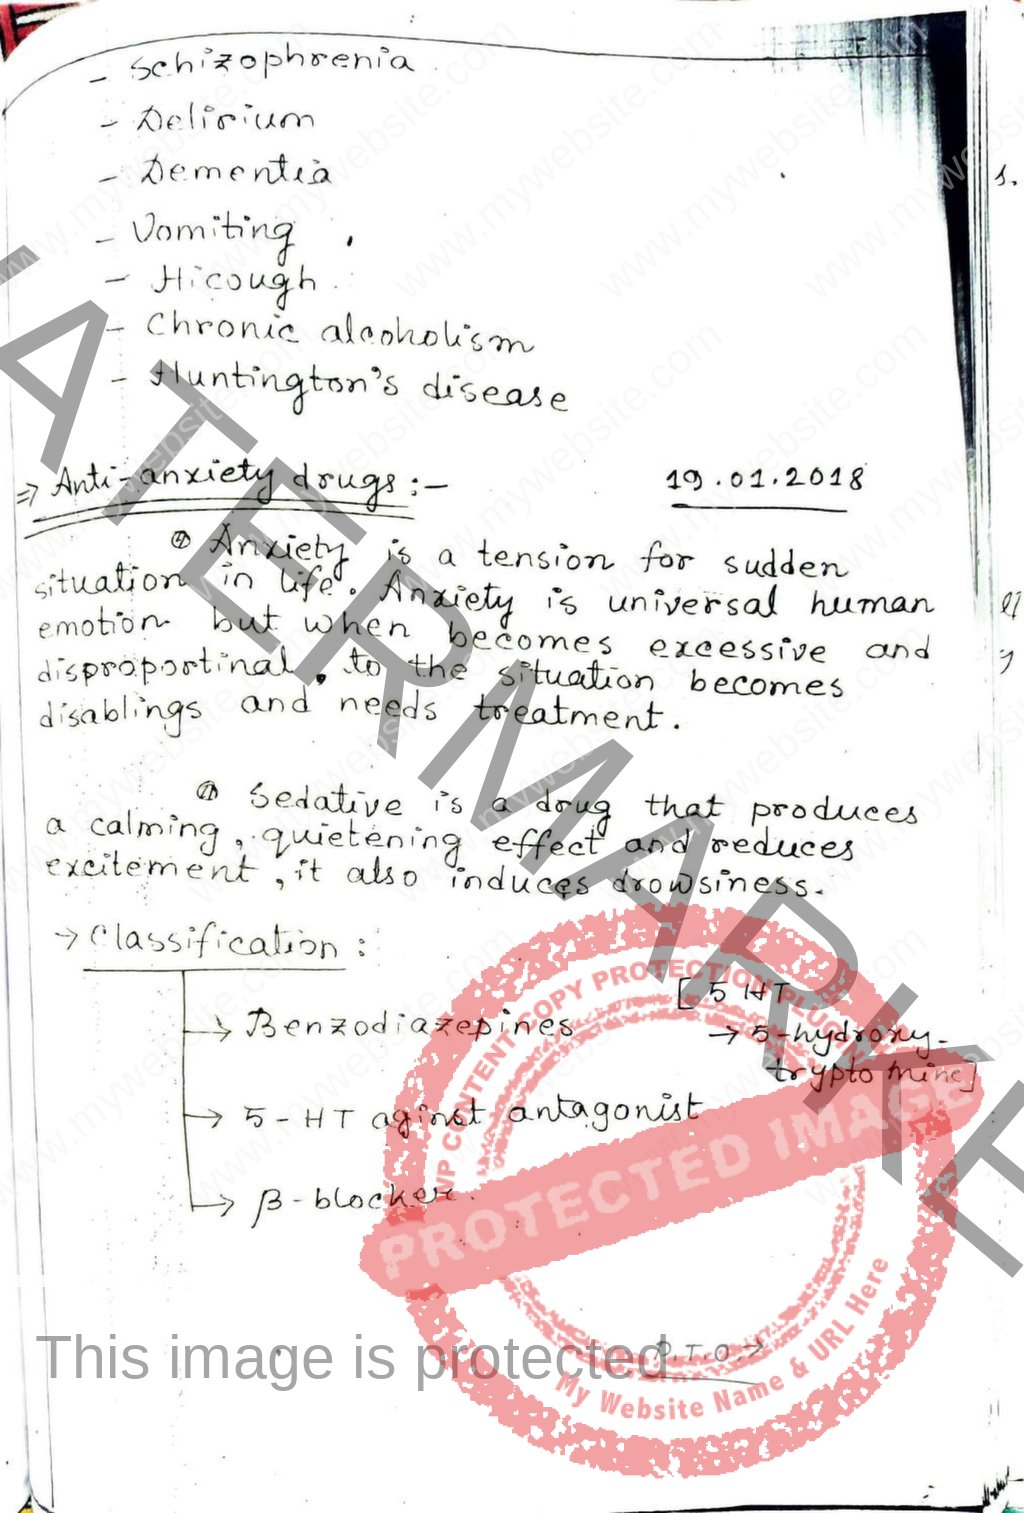 - Schizophrenia
- Delirium
- Dementia
- Vomiting
- Hicough
- Chronic alcoholism
- Huntington's disease
⇒ Anti-anxiety drugs :-
19.01.2018
Anxiety is a tension for sudden
situation in life. Anxiety is universal human
emotion but when becomes excessive and
disproportinal, to the situation becomes
disablings and needs treatment.
Sedative is a drug that produces
a calming, quietening effect and reduces
excitement, it also induces drowsiness.
→ Classification :
[5 HT
→ Benzodiazepines
→ 5-hydroxy-
tryptomine]
→ 5-HT aginst antagonist
→ β-blocker.
P.T.O. →
WATERMARKED
This image is protected
WP CONTENT COPY PROTECTION PLUGIN
PROTECTED IMAGE
My Website Name & URL Here
www.mywebsite.com